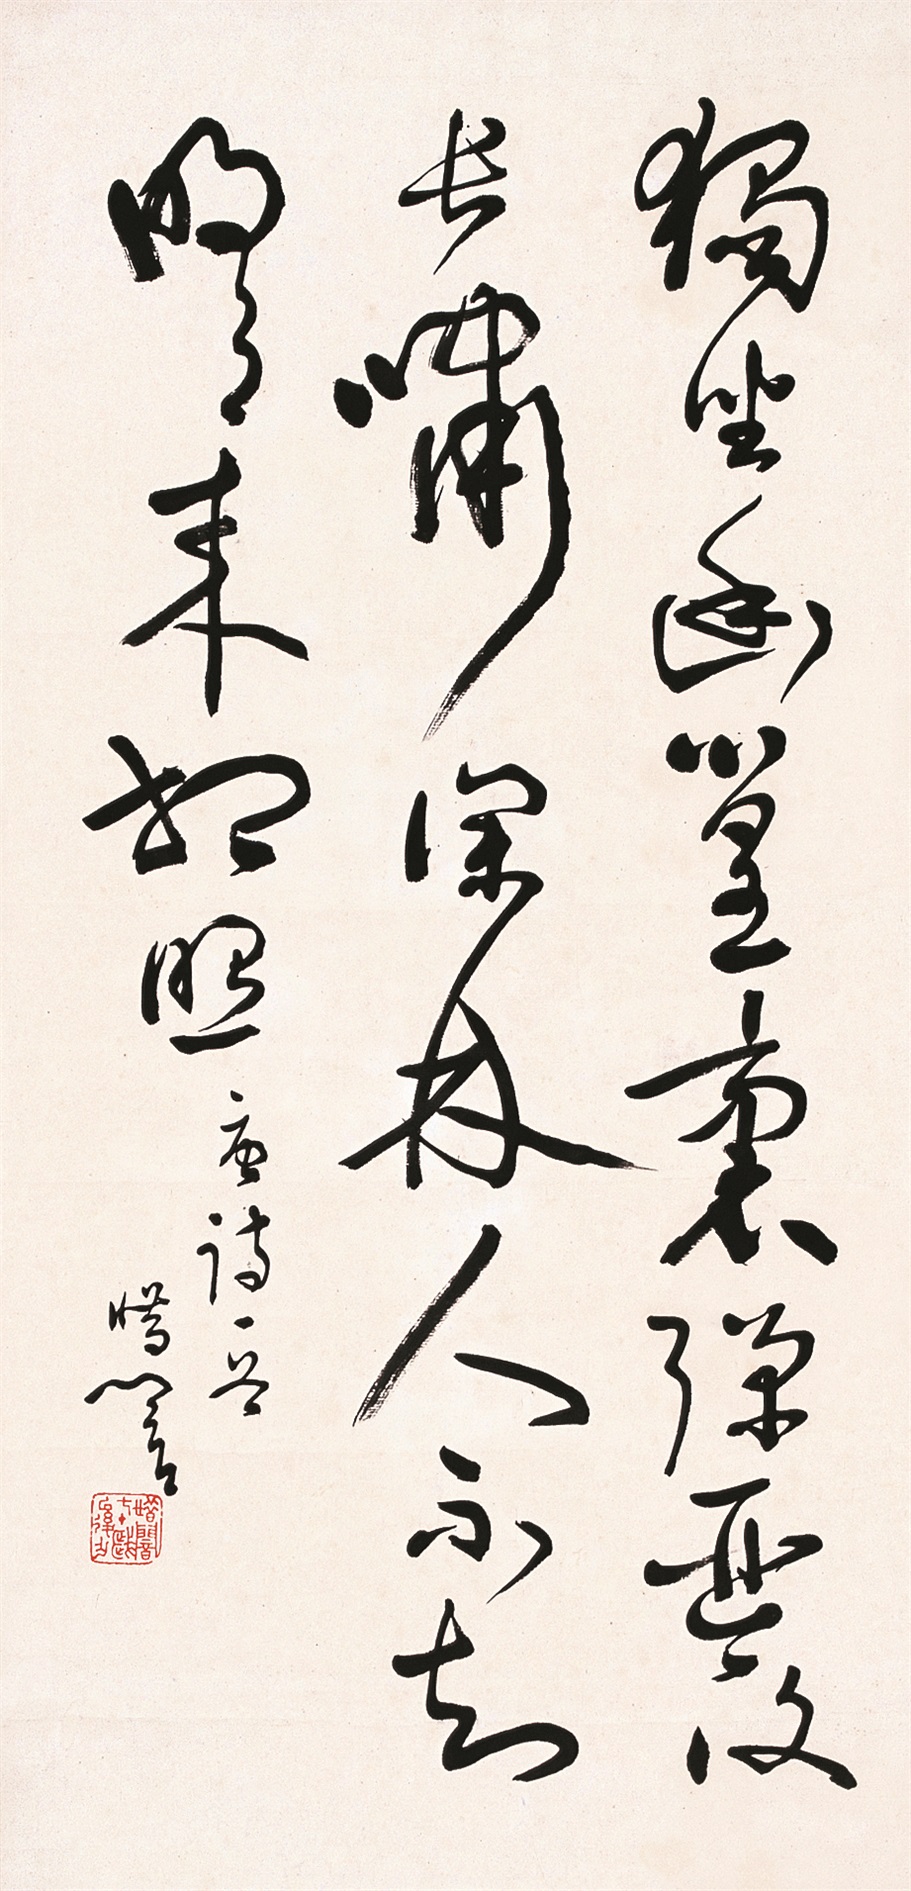 獨坐幽篁裏彈琴復
長嘯深林人不知
明月來相照
唐詩一首